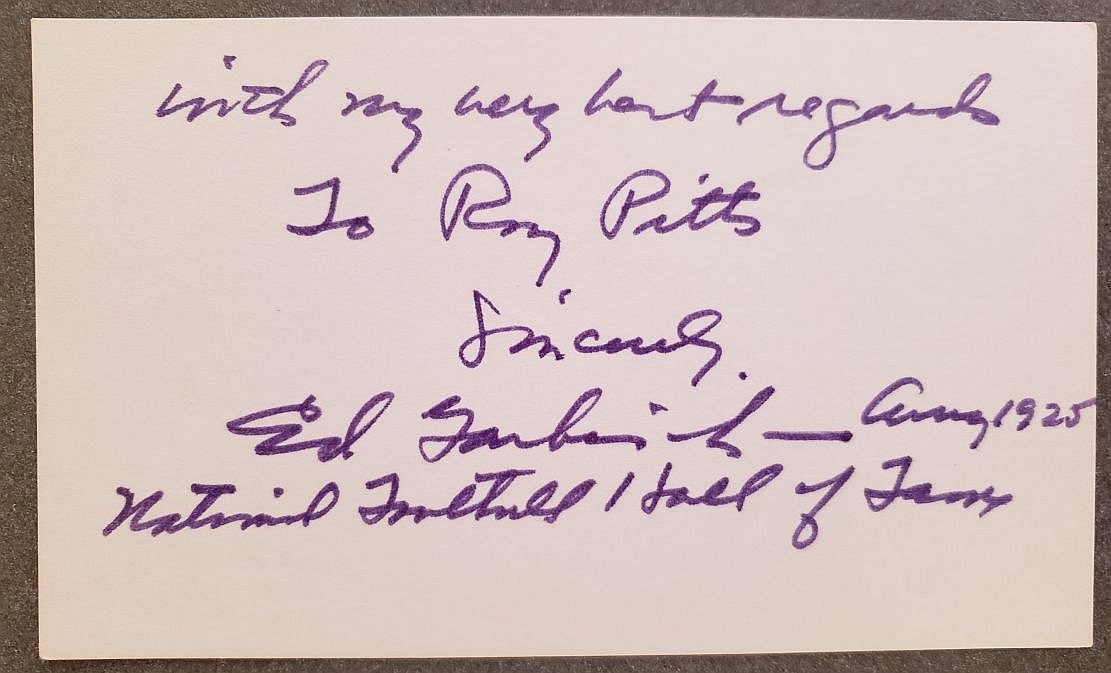 with my very best regards
To Roy Pitts
Sincerely,
Ed Garbisch — Army 1925
National Football Hall of Fame